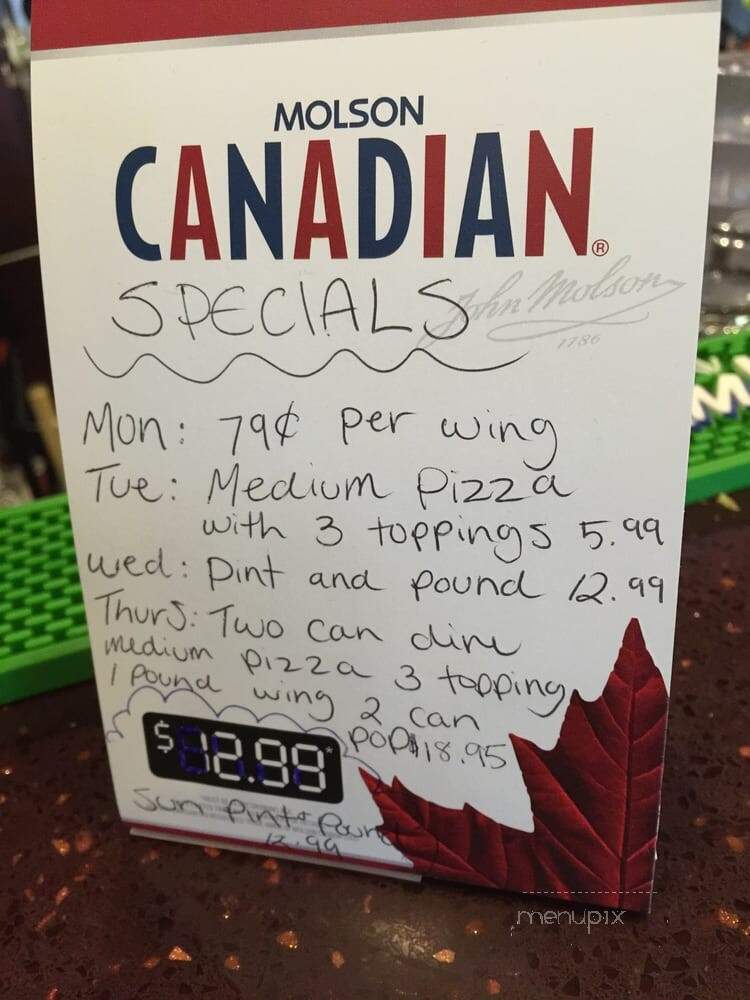 MOLSON
CANADIAN®
SPECIALS
John Molson
1786
Mon: 79¢ per wing
Tue: Medium Pizza
with 3 toppings 5.99
Wed: Pint and pound 12.99
Thurs: Two can dine
medium pizza 3 topping
1 pound wing 2 can
pop $18.95
$12.99*
Sun Pint + Pound
12.99
menupix